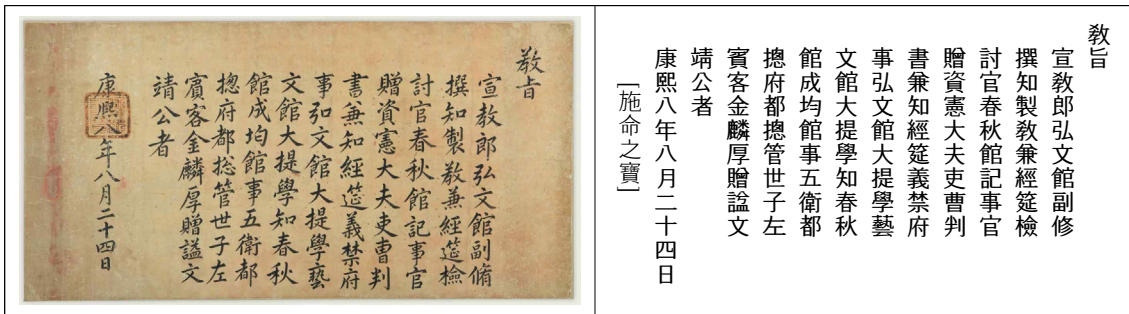 敎旨
宣敎郎弘文館副脩
撰知製敎兼經筵檢
討官春秋館記事官
贈資憲大夫吏曹判
書兼知經筵義禁府
事弘文館大提學藝
文館大提學知春秋
館成均館事五衛都
摠府都摠管世子左
賓客金麟厚贈謚文
靖公者
康熙八年八月二十四日
敎旨
宣敎郎弘文館副修
撰知製敎兼經筵檢
討官春秋館記事官
贈資憲大夫吏曹判
書兼知經筵義禁府
事弘文館大提學藝
文館大提學知春秋
館成均館事五衛都
摠府都摠管世子左
賓客金麟厚贈謚文
靖公者
康熙八年八月二十四日
[施命之寶]